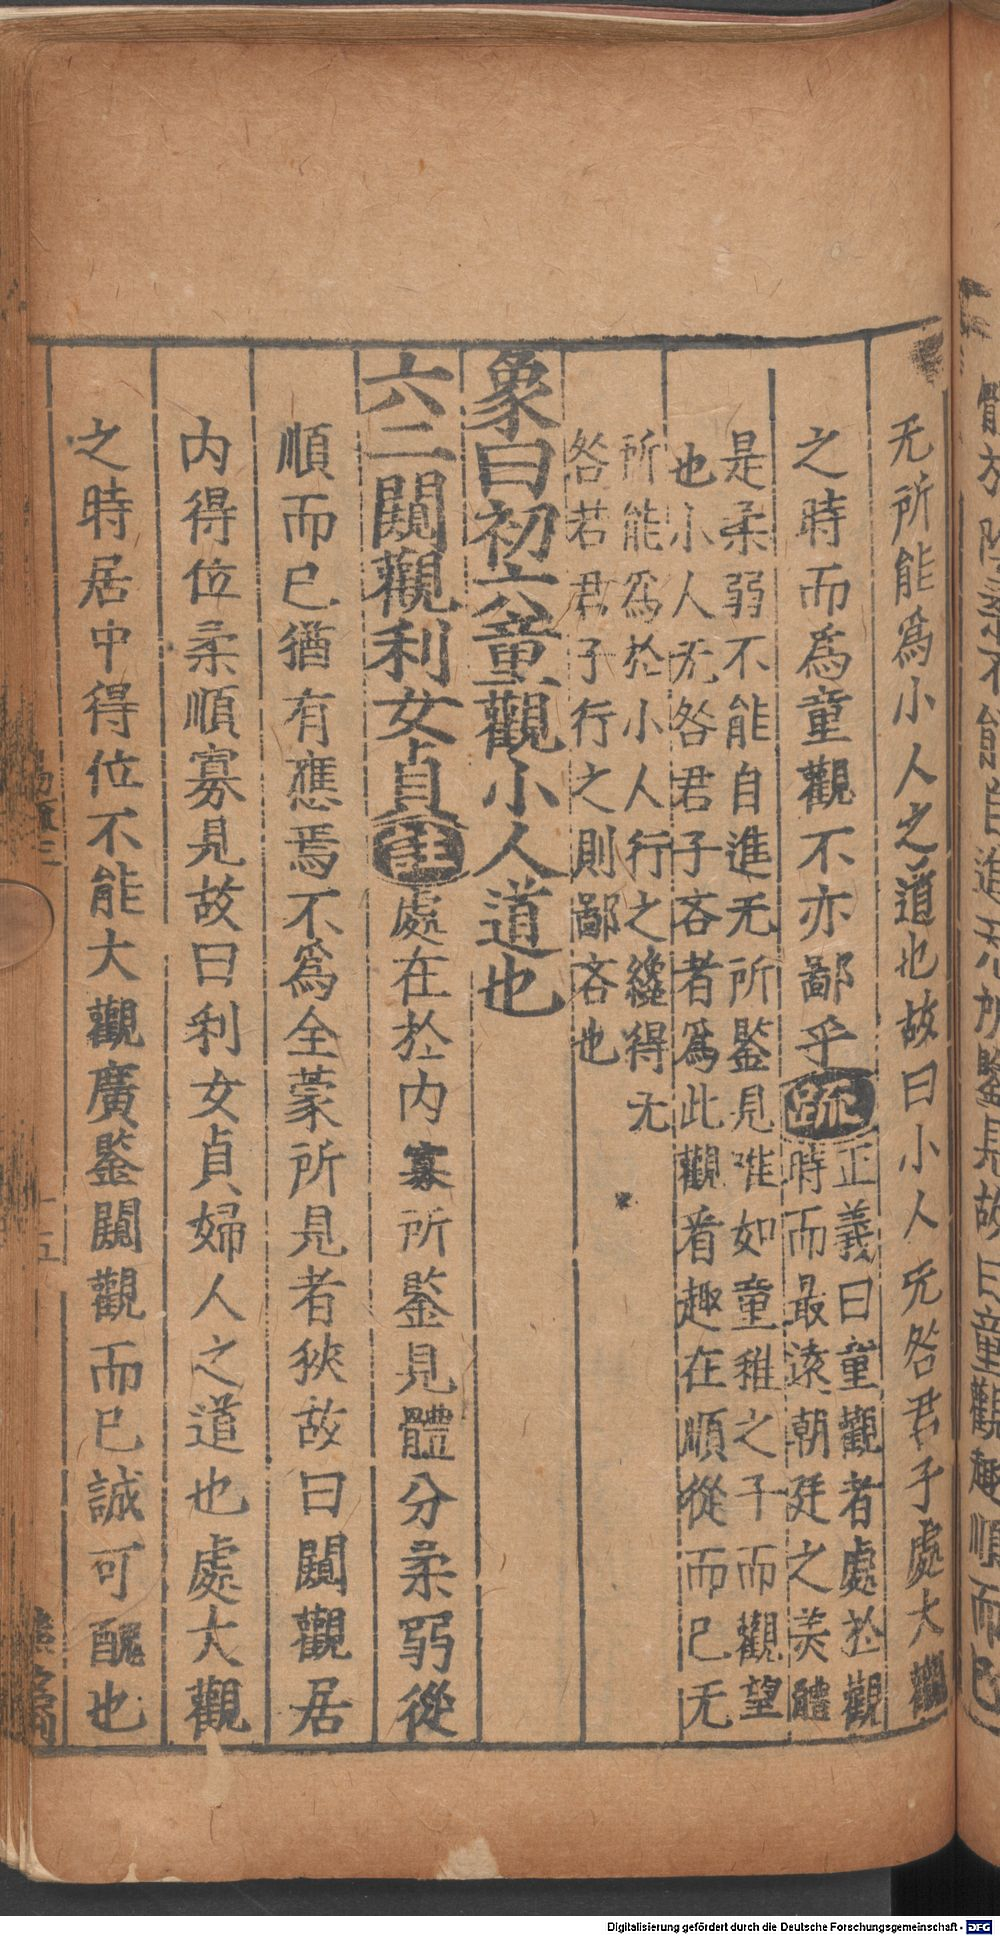 无所能爲小人之道也故曰小人无咎君子處大觀
之時而爲童觀不亦鄙乎疏正義曰童觀者處於觀
時而最遠朝廷之美體
是柔弱不能自進无所鑒見唯如童稚之子而觀望
也小人无咎君子吝者爲此觀看趣在順從而已无
所能爲於小人行之纔得无
咎若君子行之則鄙吝也
象曰初六童觀小人道也
六二闚觀利女貞註處在於内寡所鑒見體分柔弱從
順而已猶有應焉不爲全蒙所見者狹故曰闚觀居
内得位柔順寡見故曰利女貞婦人之道也處大觀
之時居中得位不能大觀廣鑒闚觀而已誠可醜也
Digitalisierung gefördert durch die Deutsche Forschungsgemeinschaft - DFG